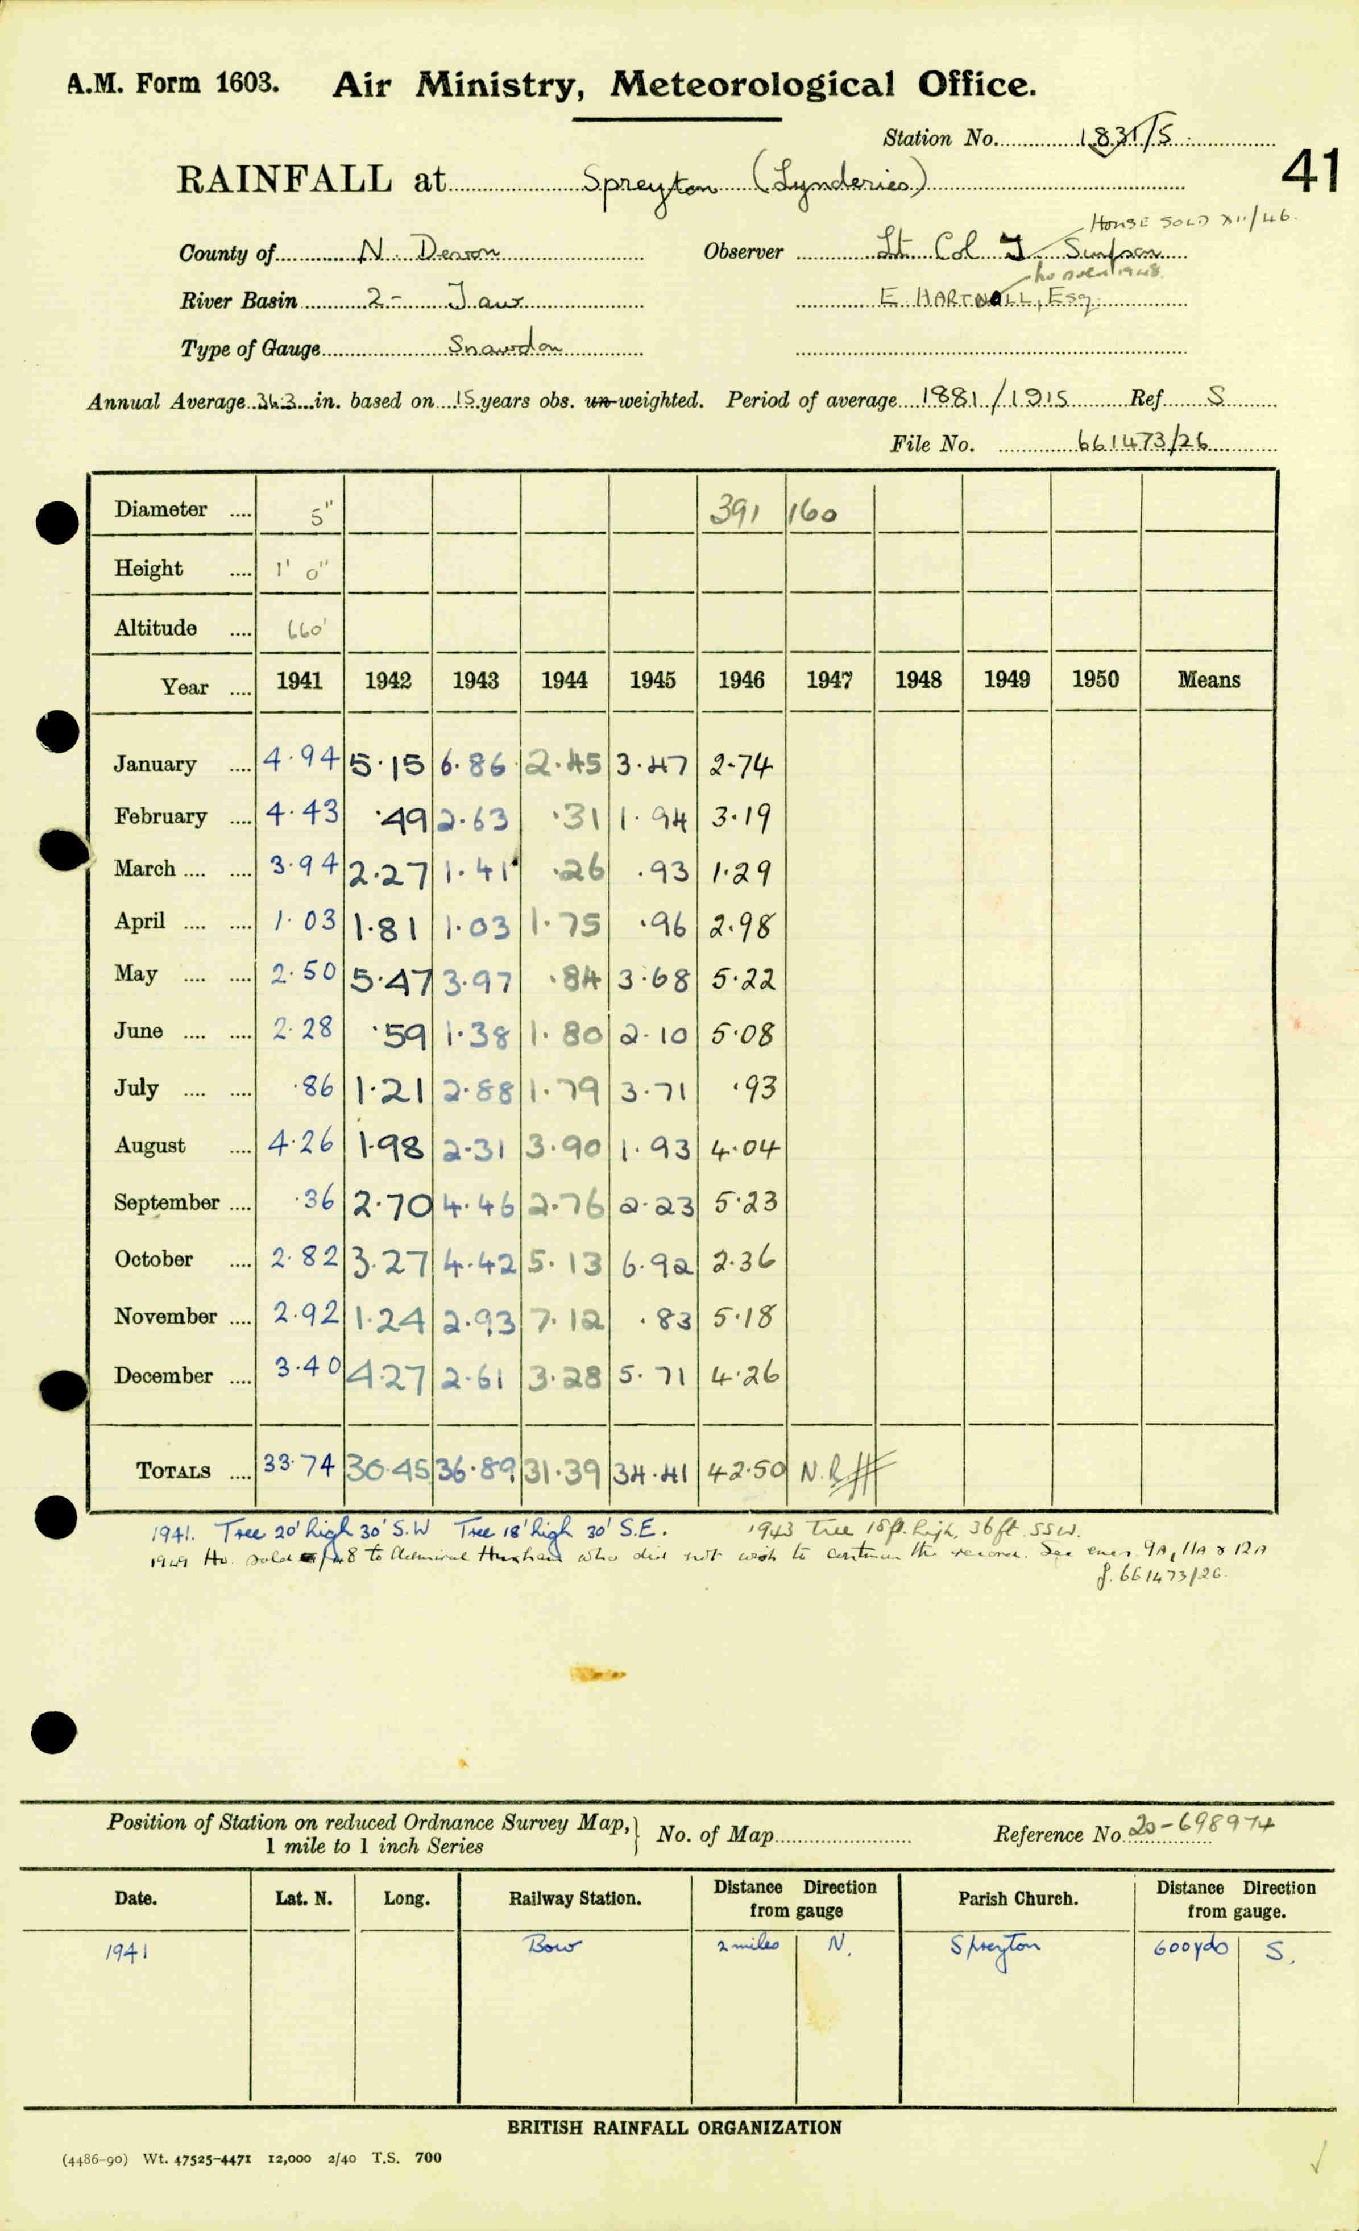 A.M. Form 1603. Air Ministry, Meteorological Office.
Station No. 1831/5
41
RAINFALL at Spreyton (Lynderies)
HOUSE SOLD XII/46.
County of N. Devon Observer Lt. Col J Simpson
ho sold 1948
River Basin 2- Taw E HARTNOLL, Esq.
Type of Gauge Snowdon
Annual Average 34.3 in. based on 15 years obs. un-weighted. Period of average 1881/1915 Ref. S
File No. 661473/26
Diameter .... 5" 391 160
Height .... 1' 0"
Altitude .... 660'
Year .... 1941 1942 1943 1944 1945 1946 1947 1948 1949 1950 Means
January .... 4.94 5.15 6.86 2.45 3.47 2.74
February .... 4.43 .49 2.63 .31 1.94 3.19
March .... .... 3.94 2.27 1.41 .26 .93 1.29
April .... .... 1.03 1.81 1.03 1.75 .96 2.98
May .... .... 2.50 5.47 3.97 .84 3.68 5.22
June .... .... 2.28 .59 1.38 1.80 2.10 5.08
July .... .... .86 1.21 2.88 1.79 3.71 .93
August .... 4.26 1.98 2.31 3.90 1.93 4.04
September .... .36 2.70 4.46 2.76 2.23 5.23
October .... 2.82 3.27 4.42 5.13 6.92 2.36
November .... 2.92 1.24 2.93 7.12 .83 5.18
December .... 3.40 4.27 2.61 3.28 5.71 4.26
TOTALS .... 33.74 30.45 36.89 31.39 34.41 42.50 N.R
1941. Tree 20' high 30' S.W Tree 18' high 30' S.E. 1943 Tree 18ft. high, 36ft SSW.
1949 Ho. sold /48 to Admiral who did not wish to continue the record. See encs. 9A, 11A & 12A
f. 661473/26.
Position of Station on reduced Ordnance Survey Map,
1 mile to 1 inch Series
No. of Map Reference No. 20-698974
Date. Lat. N. Long. Railway Station. Distance Direction from gauge Parish Church. Distance Direction from gauge.
1941 Bow 2 miles N. Spreyton 600yds S.
BRITISH RAINFALL ORGANIZATION
(4486-90) Wt. 47525-4471 12,000 2/40 T.S. 700